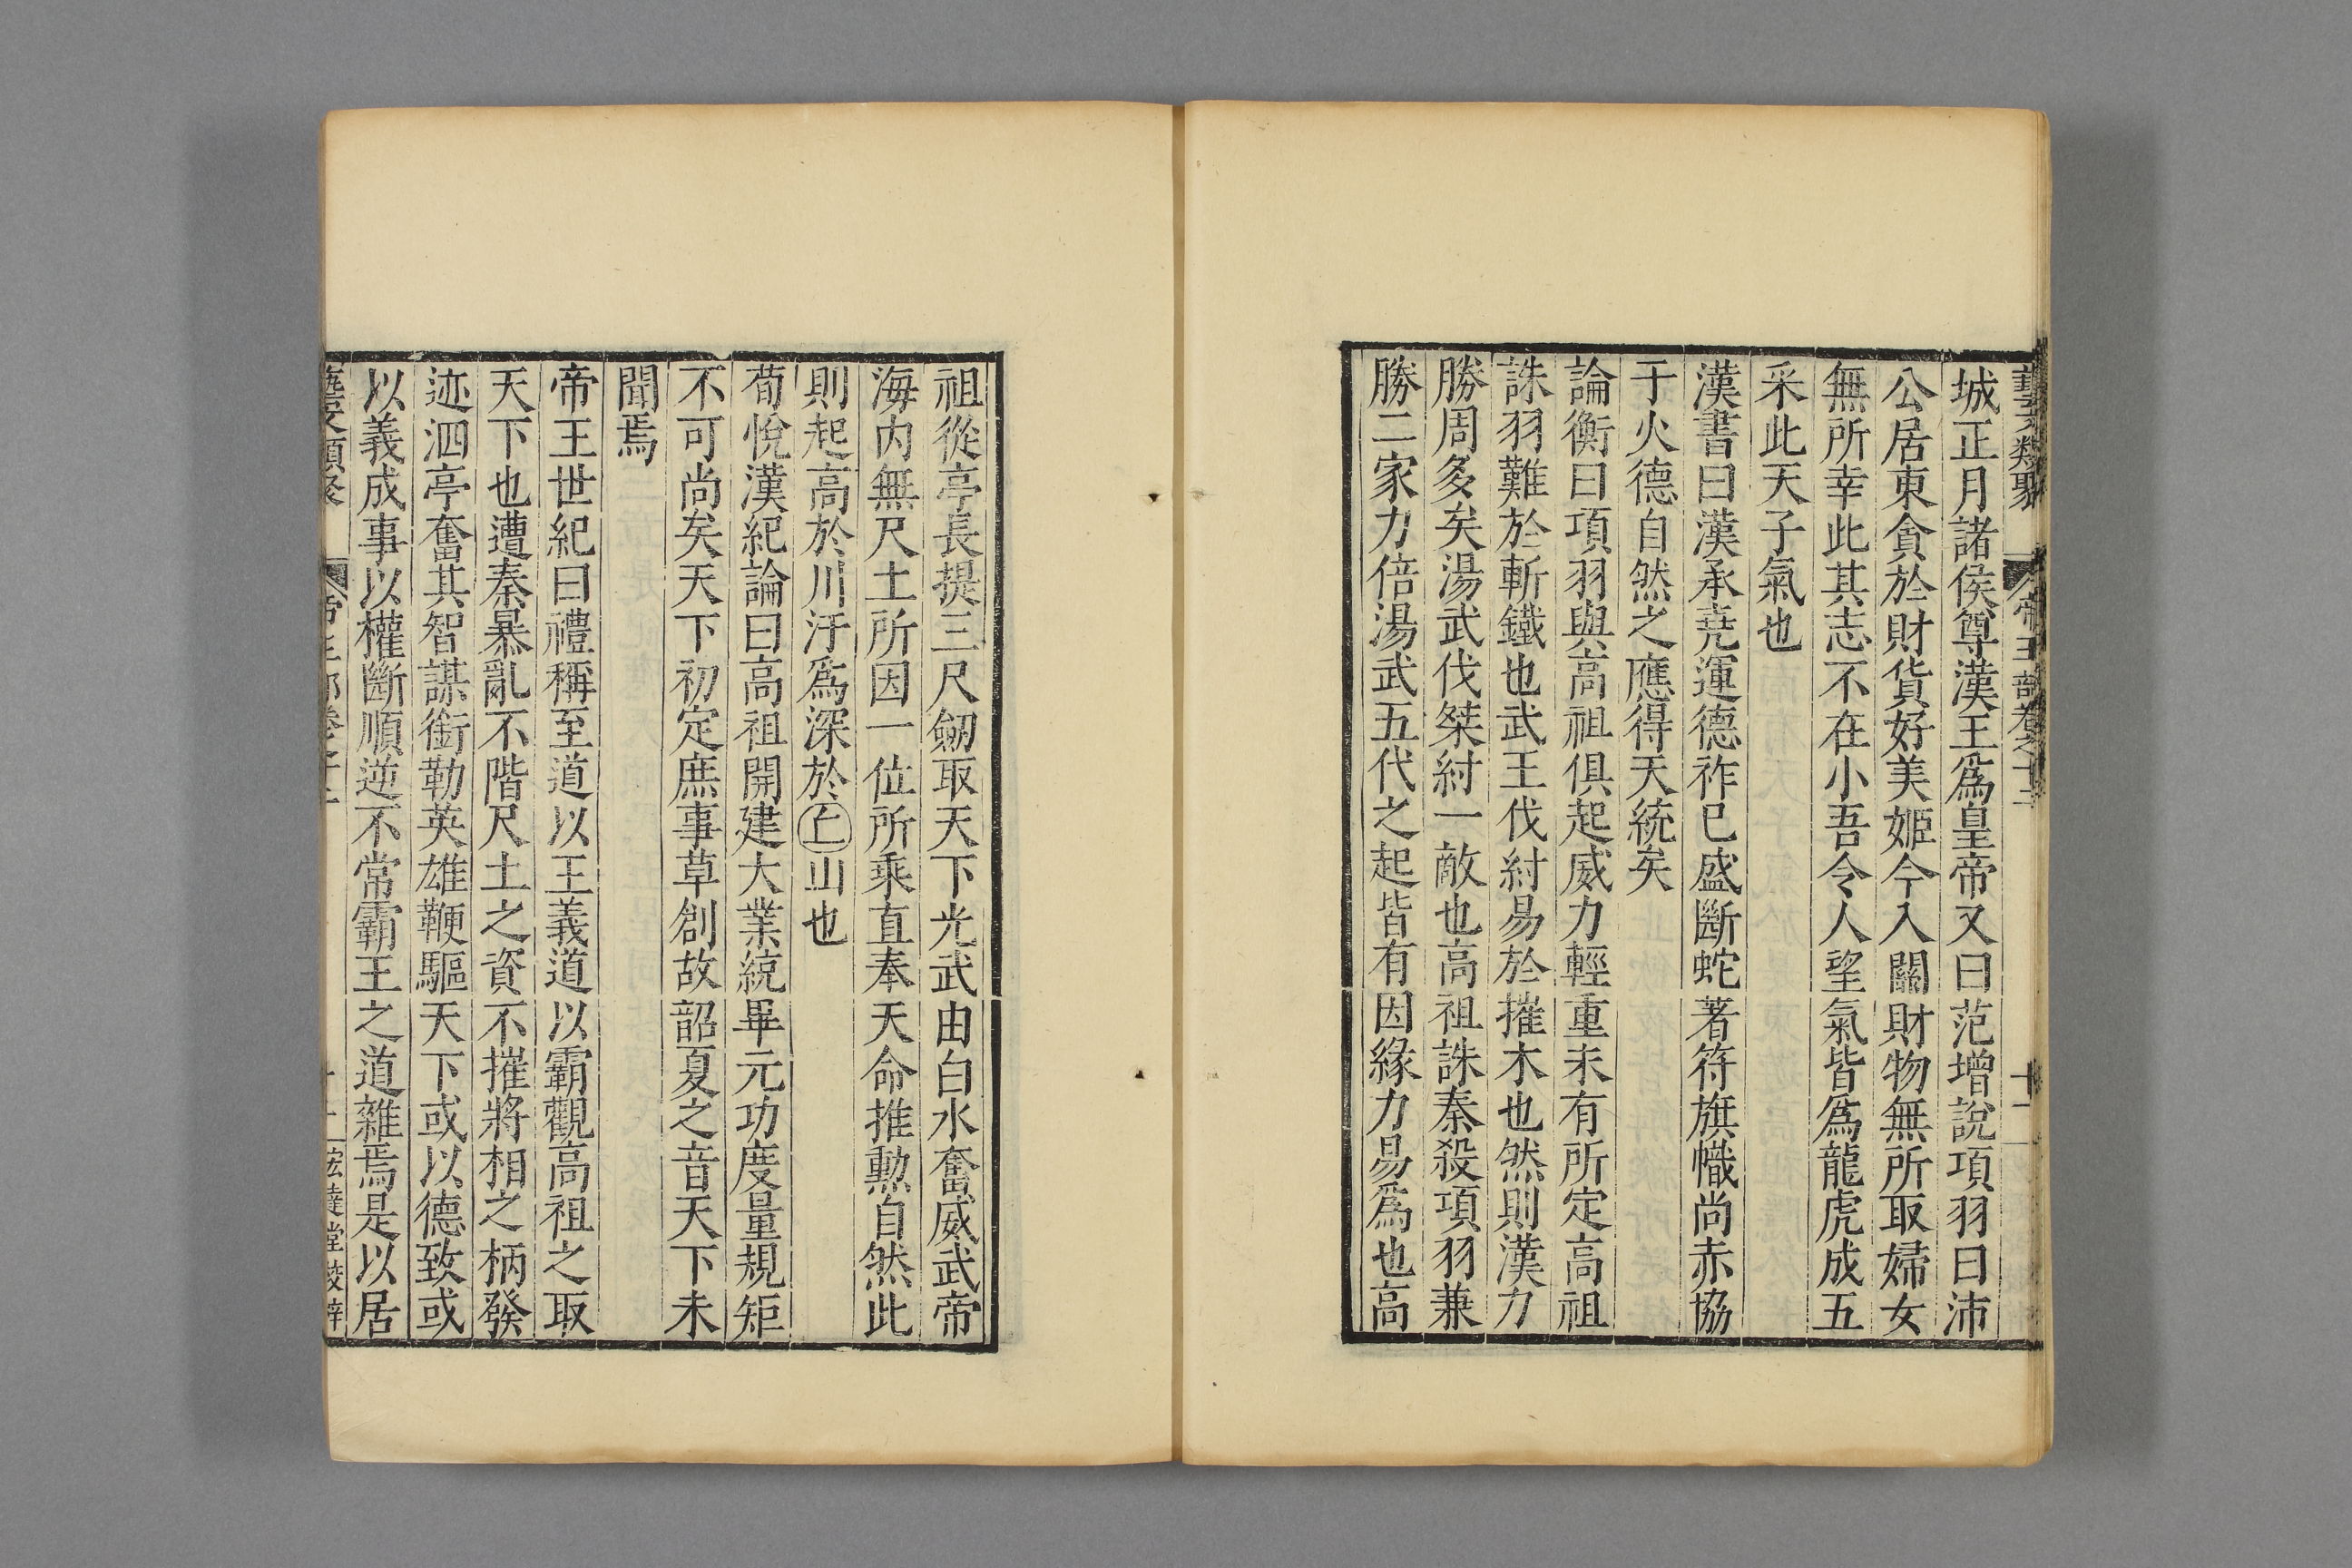 藝文類聚 帝王部卷之十二 十二
城正月諸侯尊漢王爲皇帝又曰范增說項羽曰沛
公居東貪於財貨好美姬今入關財物無所取婦女
無所幸此其志不在小吾令人望氣皆爲龍虎成五
采此天子氣也
漢書曰漢承堯運德祚已盛斷蛇著符旗幟尚赤協
于火德自然之應得天統矣
論衡曰項羽與高祖俱起威力輕重未有所定高祖
誅羽難於斬鐵也武王伐紂易於摧木也然則漢力
勝周多矣湯武伐桀紂一敵也高祖誅秦殺項羽兼
勝二家力倍湯武五代之起皆有因緣力易爲也高
祖從亭長提三尺劒取天下光武由白水奮威武帝
海内無尺土所因一位所乘直奉天命推勲自然此
則起高於川汙爲深於丘山也
荀悅漢紀論曰高祖開建大業統畢元功度量規矩
不可尚矣天下初定庶事草創故韶夏之音天下未
聞焉
帝王世紀曰禮稱至道以王義道以霸觀高祖之取
天下也遭秦暴亂不階尺土之資不摧將相之柄發
迹泗亭奮其智謀銜勒英雄鞭驅天下或以德致或
以義成事以權斷順逆不常霸王之道雜焉是以居